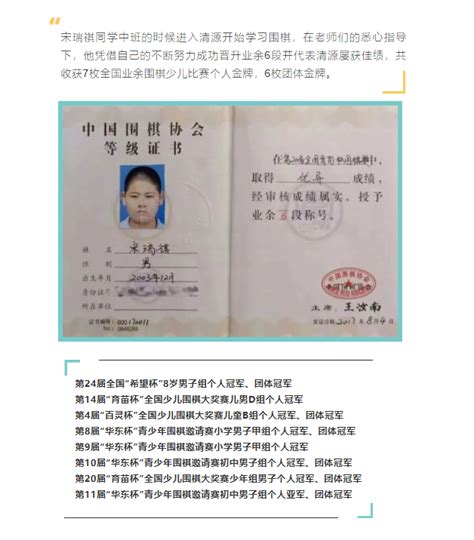 宋瑞祺同学中班的时候进入清源开始学习围棋，在老师们的悉心指导
下，他凭借自己的不断努力成功晋升业余6段并代表清源屡获佳绩，共
收获7枚全国业余围棋少儿比赛个人金牌，6枚团体金牌。
中国围棋协会
等级证书
姓名 宋瑞祺
性别 男
出生年月 2003年12月
身份证号
所在单位
证书编号:
No:
取得 优异 成绩，
经审核成绩属实，授予
业余 段称号。
中国围棋协会
主席: 王汝南
发证日期 2017年8月4日
第24届全国“希望杯”8岁男子组个人冠军、团体冠军
第14届“育苗杯”全国少儿围棋大奖赛儿男D组个人冠军
第4届“百灵杯”全国少儿围棋大奖赛儿童B组个人冠军、团体冠军
第8届“华东杯”青少年围棋邀请赛小学男子甲组个人冠军、团体冠军
第9届“华东杯”青少年围棋邀请赛小学男子甲组个人冠军
第10届“华东杯”青少年围棋邀请赛初中男子组个人冠军、团体冠军
第20届“育苗杯”全国少儿围棋大奖赛少年组男子个人冠军、团体冠军
第11届“华东杯”青少年围棋邀请赛初中男子组个人亚军、团体冠军